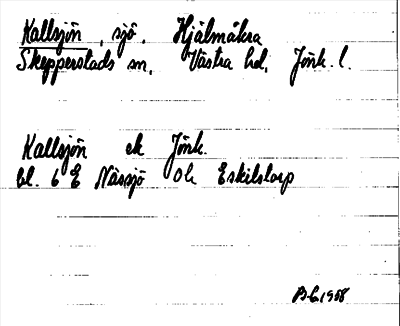 Kallsjön, sjö. Hjälmåkra
Skepperstads sn, Västra hd. Jönk. l.
Kallsjön ek Jönk.
bl. 6 E Nässjö Ok Eskilstorp
1958